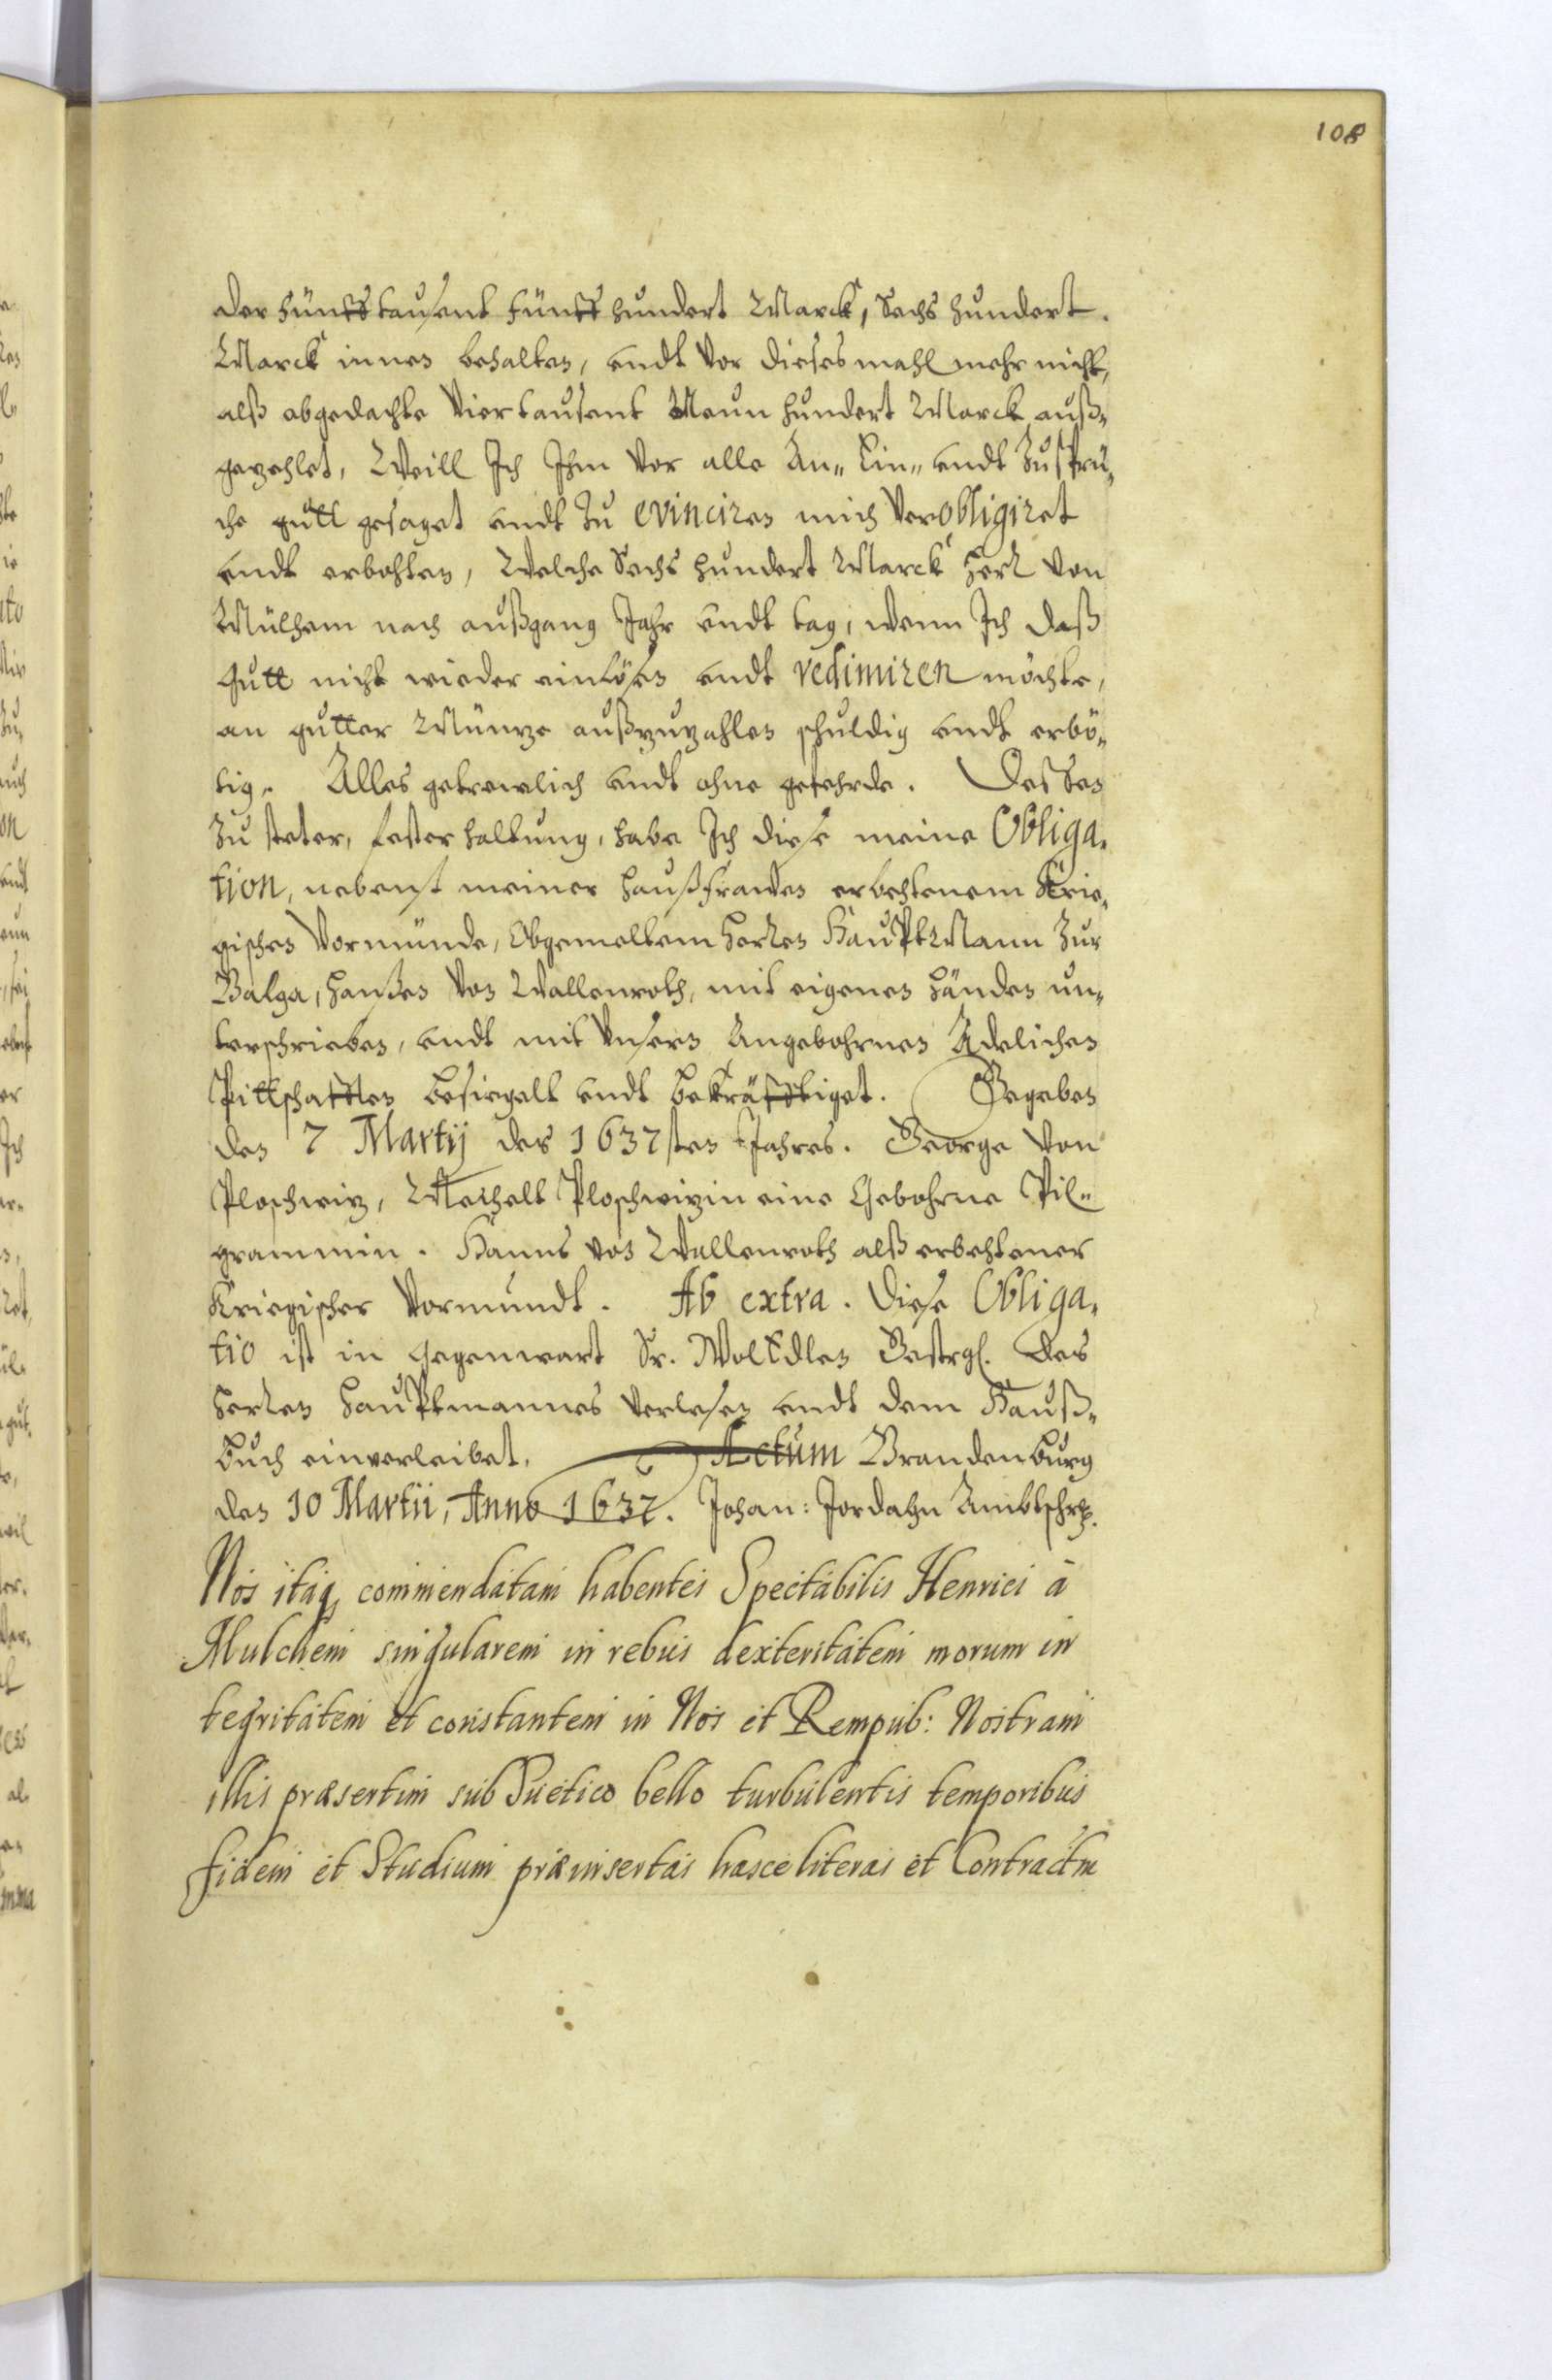 108
der Fünfftausent Fünff hundert Marck, Sechs hundert.
Marck innen behalten, undt vor dieses mahl mehr nicht,
alß obgedachte Viertausent Neun hundert Marck auß-
gezehlet, Weill Ich Ihm vor alle An- Ein- undt Zusprü-
che gutt gesaget undt zu eviniciren mich verobligiret
undt erbohten, Welche Sechs hundert Marck Herr von
Mülhem nach außgang Jahr undt tag, wenn Ich daß
Gutt nicht wieder einlösen undt redimiren möchte,
an gutter Müntze außzuzahlen schuldig undt erbö-
tig. Alles getrewlich undt ohne gefehrde. Dessen
zu steter, fester haltung, habe Ich diese meine Obliga-
tion, nebenst meiner Haußfrawen erbehtenem Krie-
gischen Vormünde, Obgemeltem Herren HauptMann zur
Balga, Hanßen von Wallenroth, mit eigenen Händen un-
terschrieben, undt mit Unsern Angebohrnen Adelichen
Pittschafften besiegelt undt bekräfftiget. Gegeben
den 7 Martij des 1637sten Jahres. George von
Ploschwitz, Ploschwitzin eine Gebohrne Pil-
grammin. Hanns von Wallenroth alß erbehtener
Kriegischer Vormundt. Ab extra. Diese Obliga-
tio ist in gegenwart Sr. WolEdlen Gestrgl. des
Herren Hauptmannes verlesen undt dem Hauß-
buch einverleibet. Actum Brandenburg
den 10 Martii, Anno 1637. Johan: Jordahn Ambtschr.
Nos itaq commendatam habentes Spectabilis Henrici à
Mulchem singularem in rebus dexteritatem morum in
tegritatem et constantem in Nos et Rempub: Nostram
illis præsertim sub Suetico bello turbulentis temporibus
fidem et Studium præinsertas hasce literas et Contractm